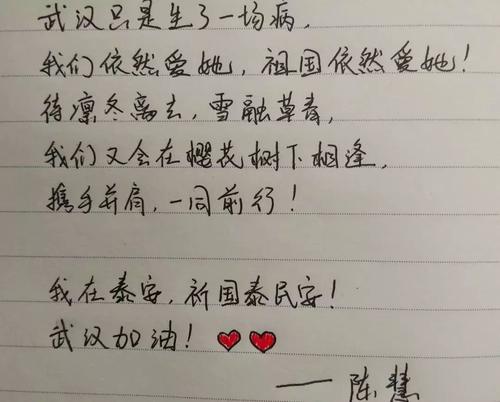 武汉只是生了一场病，
我们依然爱她，祖国依然爱她！
待凛冬离去，雪融草青，
我们又会在樱花树下相逢，
携手并肩，一同前行！
我在泰安，祈国泰民安！
武汉加油！
——陈慧